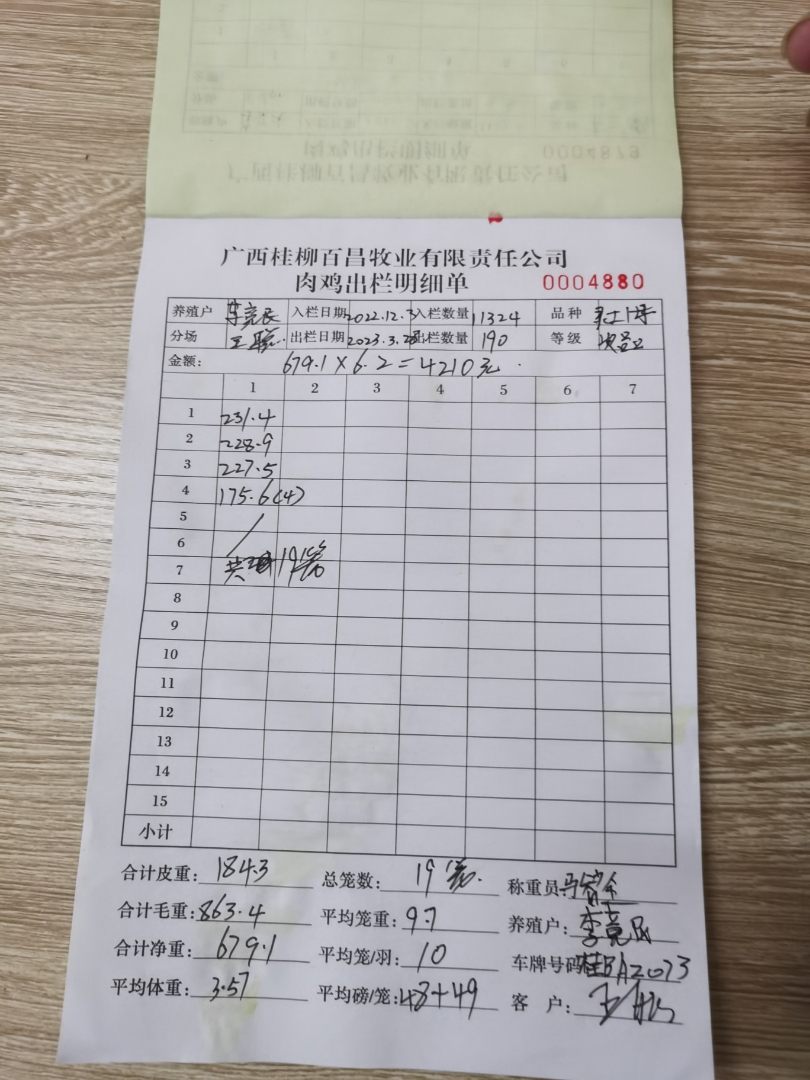 广西桂柳百昌牧业有限责任公司
肉鸡出栏明细单 0004880
养殖户 李竞民 入栏日期 2022.12.3 入栏数量 11324 品种
分场 出栏日期 2023.3.28 出栏数量 190 等级
金额: 679.1×6.2=4210元.
1 2 3 4 5 6 7
1 231.4
2 228.9
3 227.5
4 175.6(4)
5
6
7 共 19笼
8
9
10
11
12
13
14
15
小计
合计皮重: 184.3 总笼数: 19笼. 称重员
合计毛重: 863.4 平均笼重: 9.7 养殖户: 李竞民
合计净重: 679.1 平均笼/羽: 10 车牌号码 桂BA2073
平均体重: 3.57 平均磅/笼: 48+49 客 户: